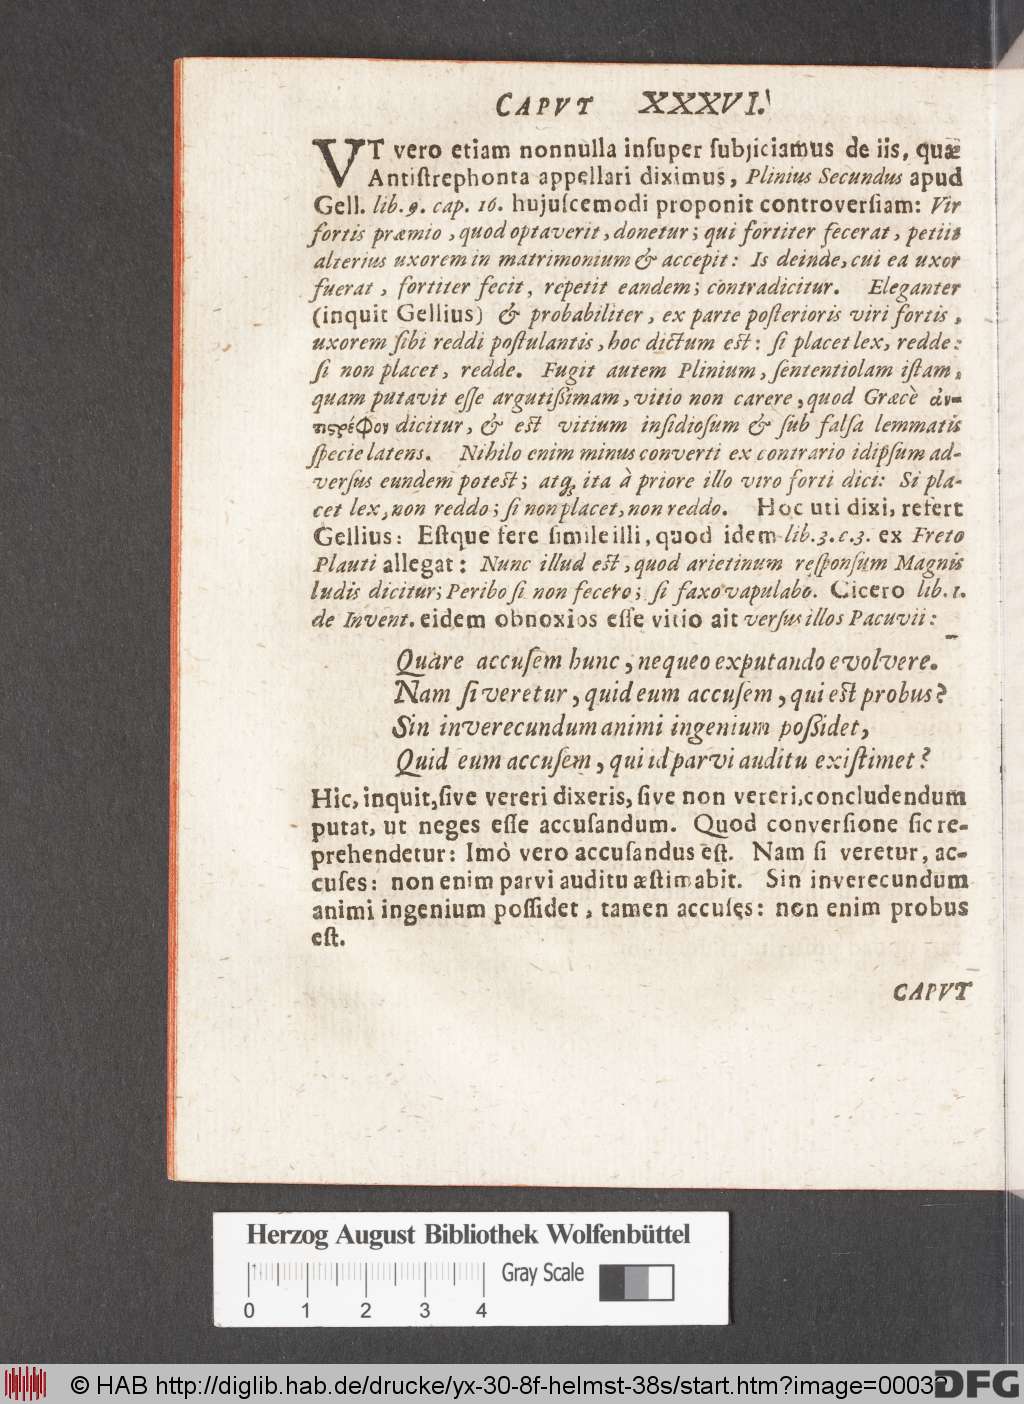 CAPVT XXXVI.
VT vero etiam nonnulla inſuper ſubjiciamus de iis, quæ
Antiſtrephonta appellari diximus, Plinius Secundus apud
Gell. lib. 9. cap. 16. hujuſcemodi proponit controverſiam: Vir
fortis præmio, quod optaverit, donetur; qui fortiter fecerat, petiit
alterius uxorem in matrimonium & accepit: Is deinde, cui ea uxor
fuerat, fortiter fecit, repetit eandem; contradicitur. Eleganter
(inquit Gellius) & probabiliter, ex parte poſterioris viri fortis,
uxorem ſibi reddi poſtulantis, hoc dictum est: ſi placet lex, redde:
ſi non placet, redde. Fugit autem Plinium, ſententiolam iſtam,
quam putavit eſſe argutiſſimam, vitio non carere, quod Græcè ἀν-
τιϛρέφον dicitur, & est vitium inſidioſum & ſub falſa lemmatis
ſpecie latens. Nihilo enim minus converti ex contrario idipſum ad-
verſus eundem potest; atq; ita à priore illo viro forti dici: Si pla-
cet lex, non reddo; ſi non placet, non reddo. Hoc uti dixi, refert
Gellius: Eſtque fere ſimile illi, quod idem lib. 3. c. 3. ex Freto
Plauti allegat: Nunc illud est, quod arietinum reſponſum Magnis
ludis dicitur; Peribo ſi non fecero; ſi faxo vapulabo. Cicero lib. 1.
de Invent. eidem obnoxios eſſe vitio ait verſus illos Pacuvii:
Quare accuſem hunc, nequeo exputando evolvere.
Nam ſi veretur, quid eum accuſem, qui est probus?
Sin inverecundum animi ingenium poſſidet,
Quid eum accuſem, qui id parvi auditu exiſtimet?
Hic, inquit, ſive vereri dixeris, ſive non vereri, concludendum
putat, ut neges eſſe accuſandum. Quod converſione ſic re-
prehendetur: Imò vero accuſandus eſt. Nam ſi veretur, ac-
cuſes: non enim parvi auditu æſtimabit. Sin inverecundum
animi ingenium poſſidet, tamen accuſes: non enim probus
eſt.
CAPVT
Herzog August Bibliothek Wolfenbüttel
Gray Scale
0 1 2 3 4
© HAB http://diglib.hab.de/drucke/yx-30-8f-helmst-38s/start.htm?image=00032
DFG